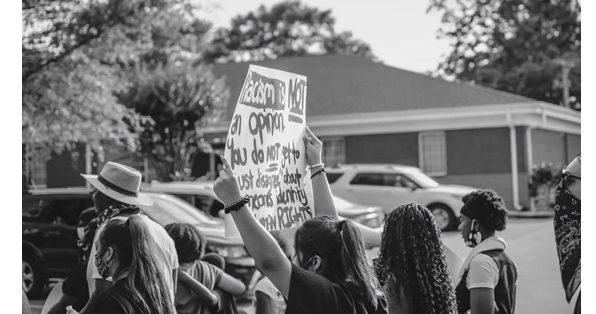 Racism is NOT
an opinion
You do NOT get to
just disagree about
identity
HUMAN RIGHTS